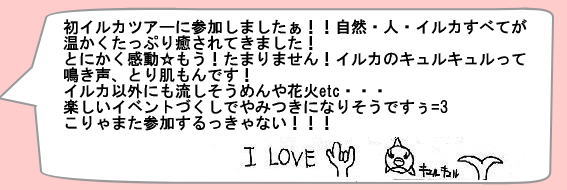 初イルカツアーに参加しましたぁ！！自然・人・イルカすべてが
温かくたっぷり癒されてきました！
とにかく感動☆もう！たまりません！イルカのキュルキュルって
鳴き声、とり肌もんです！
イルカ以外にも流しそうめんや花火etc・・・
楽しいイベントづくしでやみつきになりそうですぅ=3
こりゃまた参加するっきゃない！！！
I LOVE
キュルキュル